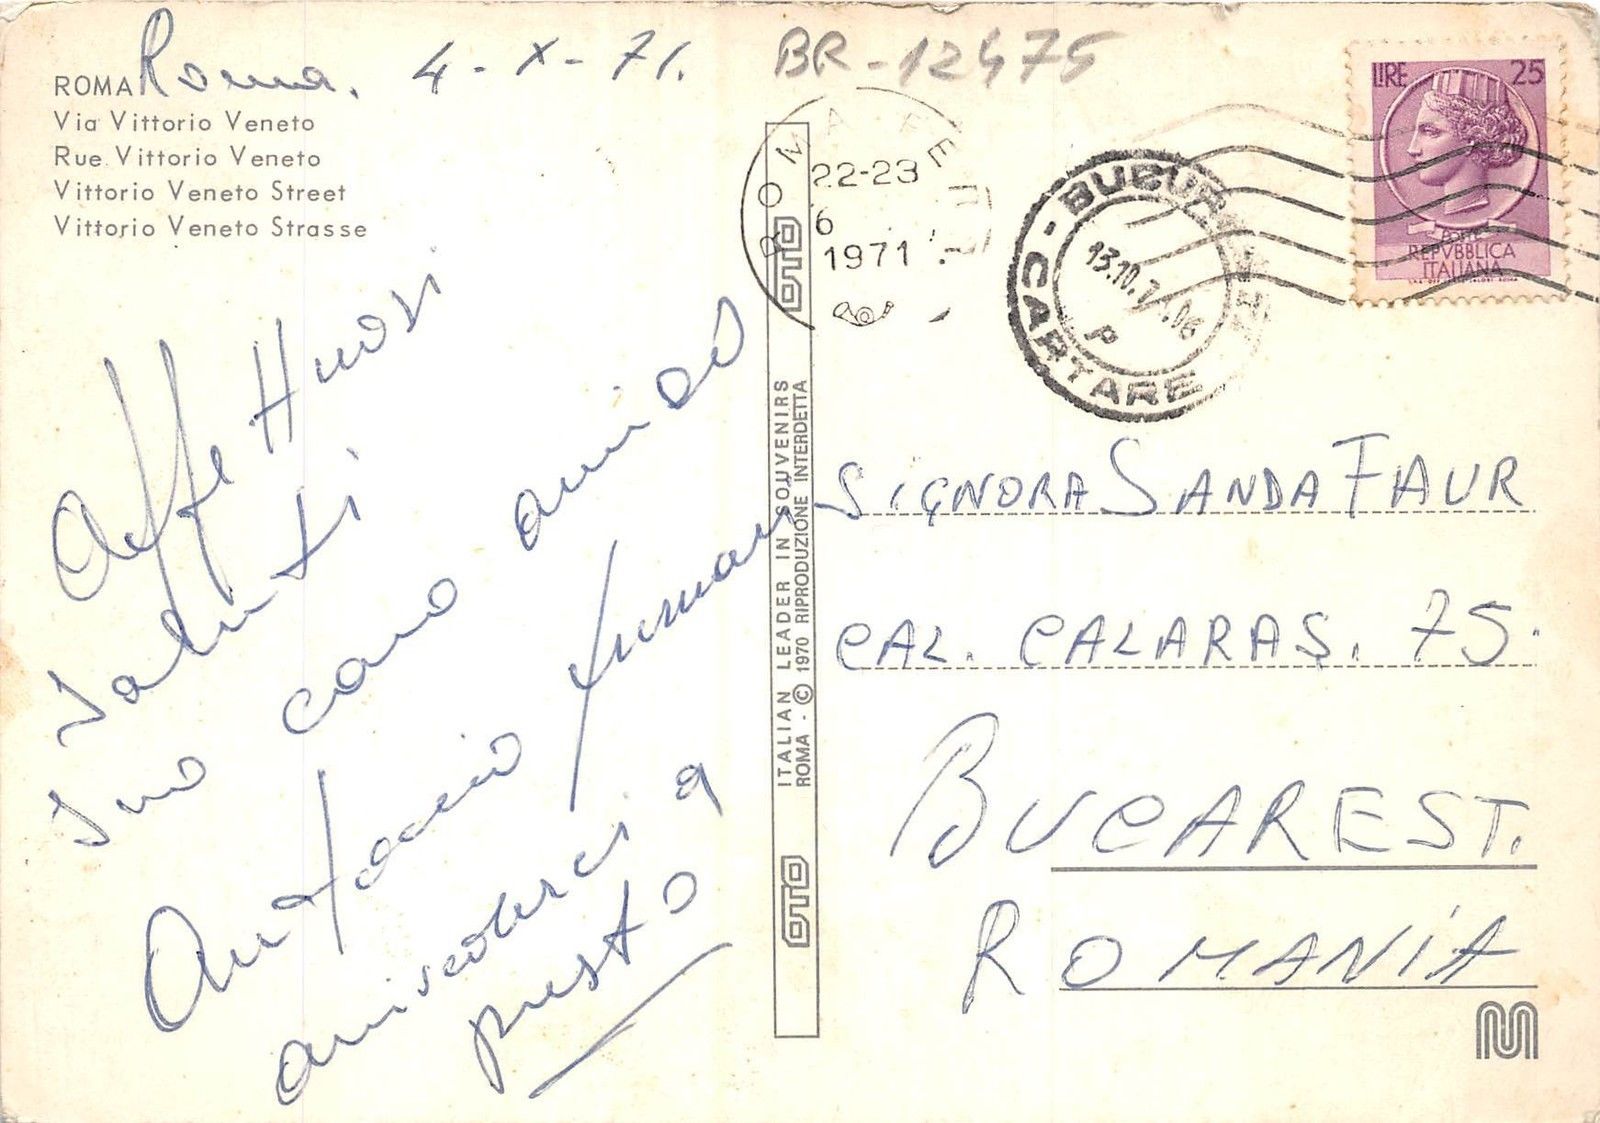 ROMA
Via Vittorio Veneto
Rue Vittorio Veneto
Vittorio Veneto Street
Vittorio Veneto Strasse
Roma. 4-X-71.
BR-12475
Affettuosi
saluti
suo caro amico
Antonio
arrivederci a
presto
OTO
ITALIAN LEADER IN SOUVENIRS
ROMA - © 1970 RIPRODUZIONE INTERDETTA
OTO
ROMA FERR
22-23
6
1971
BUCUREȘTI
CARTARE
13.10.71.06
P
LIRE 25
POSTE
REPVBBLICA
ITALIANA
SIGNORA SANDA FAUR
CAL. CALARAȘ. 75.
BUCAREST.
ROMANÍA